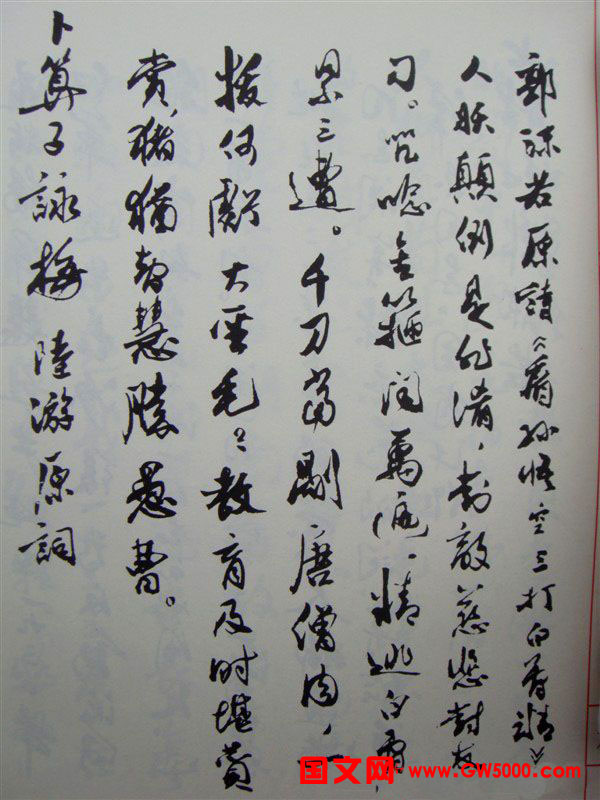 郭沫若原詩《看孙悟空三打白骨精》
人妖顛倒是非淆，对敵慈悲对友
刁。咒唸金箍闻萬遍，精逃白骨
累三遭。千刀当剮唐僧肉，一
拔何虧大圣毛。教育及时堪赞
赏，猪猶智慧勝愚曹。
卜算子 詠梅 陸游原詞
国文网：www.GW5000.com